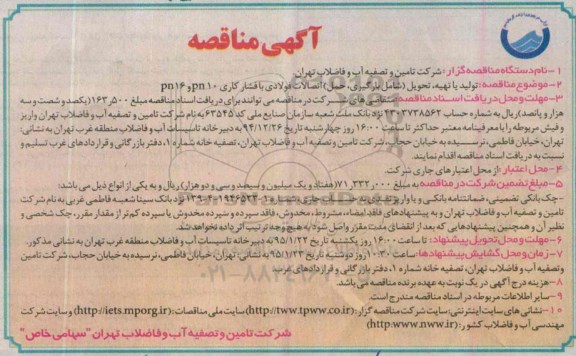 آگهی مناقصه
۱- نام دستگاه مناقصه گزار: شرکت تامین و تصفیه آب و فاضلاب تهران
۲- موضوع مناقصه: تولید یا تهیه، تحویل (شامل بارگیری و حمل) اتصالات فولادی با فشار کاری pn۱۰ و pn۱۶
۳- مهلت و محل دریافت اسناد مناقصه: متقاضیان شرکت در مناقصه می توانند برای دریافت اسناد مناقصه مبلغ ۱۶۳,۵۰۰ (یکصد و شصت و سه
هزار و پانصد) ریال به شماره حساب نزد بانک ملت شعبه سازمان صنایع ملی کد ۶۳۵۴۵ به نام شرکت تامین و تصفیه آب و فاضلاب تهران واریز
و فیش مربوطه را با معرفینامه معتبر حداکثر تا ساعت ۱۶:۰۰ روز چهارشنبه تاریخ ۹۴/۱۲/۲۶ به دبیرخانه تاسیسات آب و فاضلاب منطقه غرب تهران به نشانی:
تهران، خیابان فاطمی، نرسیده به خیابان حجاب، شرکت تامین و تصفیه آب و فاضلاب تهران، تصفیه خانه شماره ۱، دفتر بازرگانی و قراردادهای غرب تسلیم و
نسبت به دریافت اسناد مناقصه اقدام نمایند.
۴- محل اعتبار: از محل اعتبارهای جاری شرکت
۵- مبلغ تضمین شرکت در مناقصه به مبلغ ۷۱,۳۳۲,۰۰۰ (هفتاد و یک میلیون و سیصد و سی و دو هزار) ریال و به یکی از انواع ذیل می باشد:
- چک بانکی تضمینی، ضمانتنامه بانکی و یا واریز نزد بانک سینا شعبه فاطمی غربی به نام شرکت
تامین و تصفیه آب و فاضلاب تهران و به پیشنهادهای فاقد امضاء، مشروط، مخدوش، فاقد سپرده و سپرده مخدوش یا سپرده کم تر از مقدار مقرر، چک شخصی و
نظیر آن و همچنین پیشنهادهایی که بعد از انقضای مدت مقرر واصل شود به هیچ وجه ترتیب اثر داده نخواهد شد.
۶- مهلت و محل تحویل پیشنهاد: تا ساعت ۱۶:۰۰ روز یکشنبه تاریخ ۹۵/۱/۲۲ به دبیرخانه تاسیسات آب و فاضلاب منطقه غرب تهران به نشانی مذکور.
۷- زمان و محل گشایش پیشنهادها: ساعت ۱۰:۳۰ روز دوشنبه تاریخ ۹۵/۱/۲۳ به نشانی: تهران، خیابان فاطمی، نرسیده به خیابان حجاب، شرکت تامین
و تصفیه آب و فاضلاب تهران، تصفیه خانه شماره ۱، دفتر بازرگانی و قراردادهای غرب
۸- هزینه درج آگهی در یک نوبت به عهده برنده مناقصه می باشد.
۹- سایر اطلاعات مربوطه در اسناد مناقصه مندرج است.
۱۰- نشانی های سایت اینترنتی: سایت شرکت مناقصه گزار: (http://tww.tpww.co.ir) سایت ملی مناقصات: (http://iets.mporg.ir) و سایت شرکت
مهندسی آب و فاضلاب کشور: (http:www.nww.ir)
شرکت تامین و تصفیه آب و فاضلاب تهران "سهامی خاص"